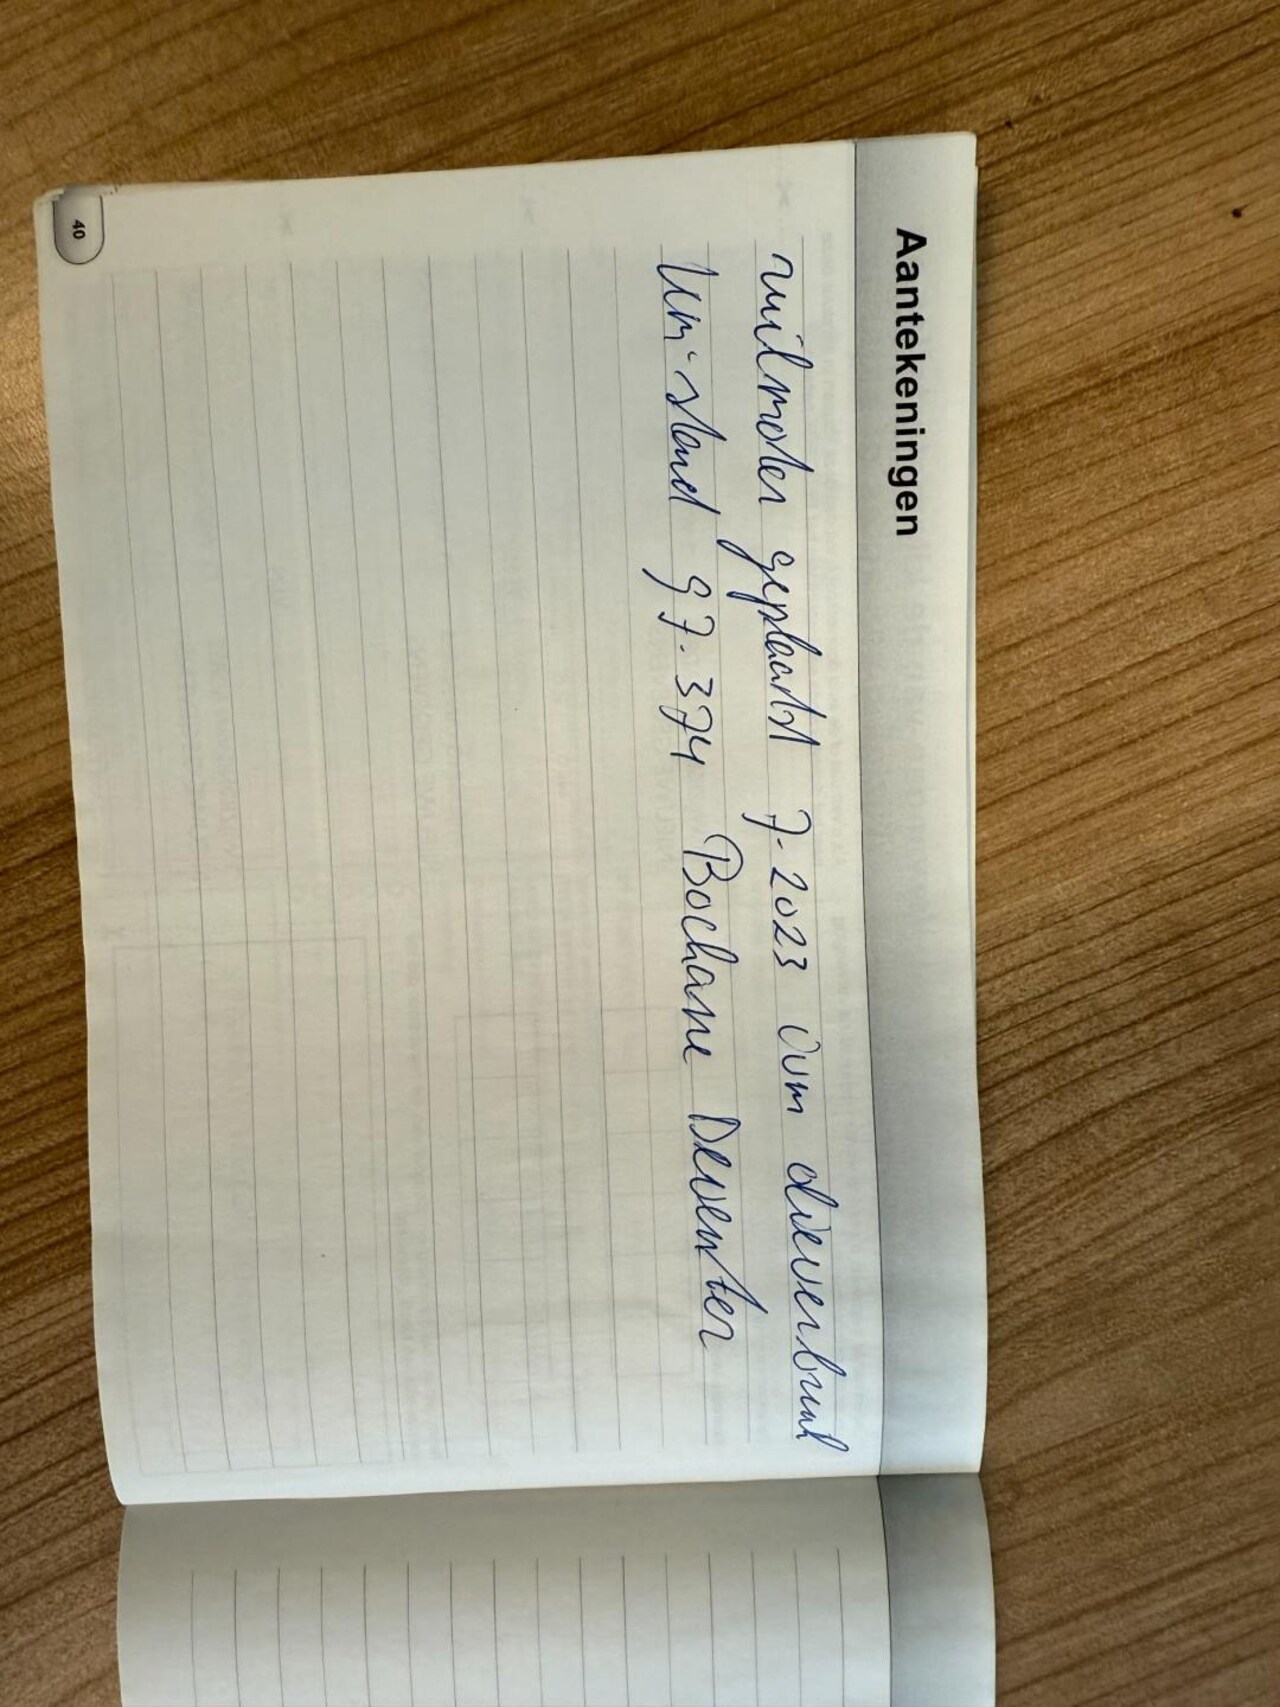 Aantekeningen
ruilmoter geplaatst 7-2023 ivm
km-stand 97.374 Bochane Deventer
40